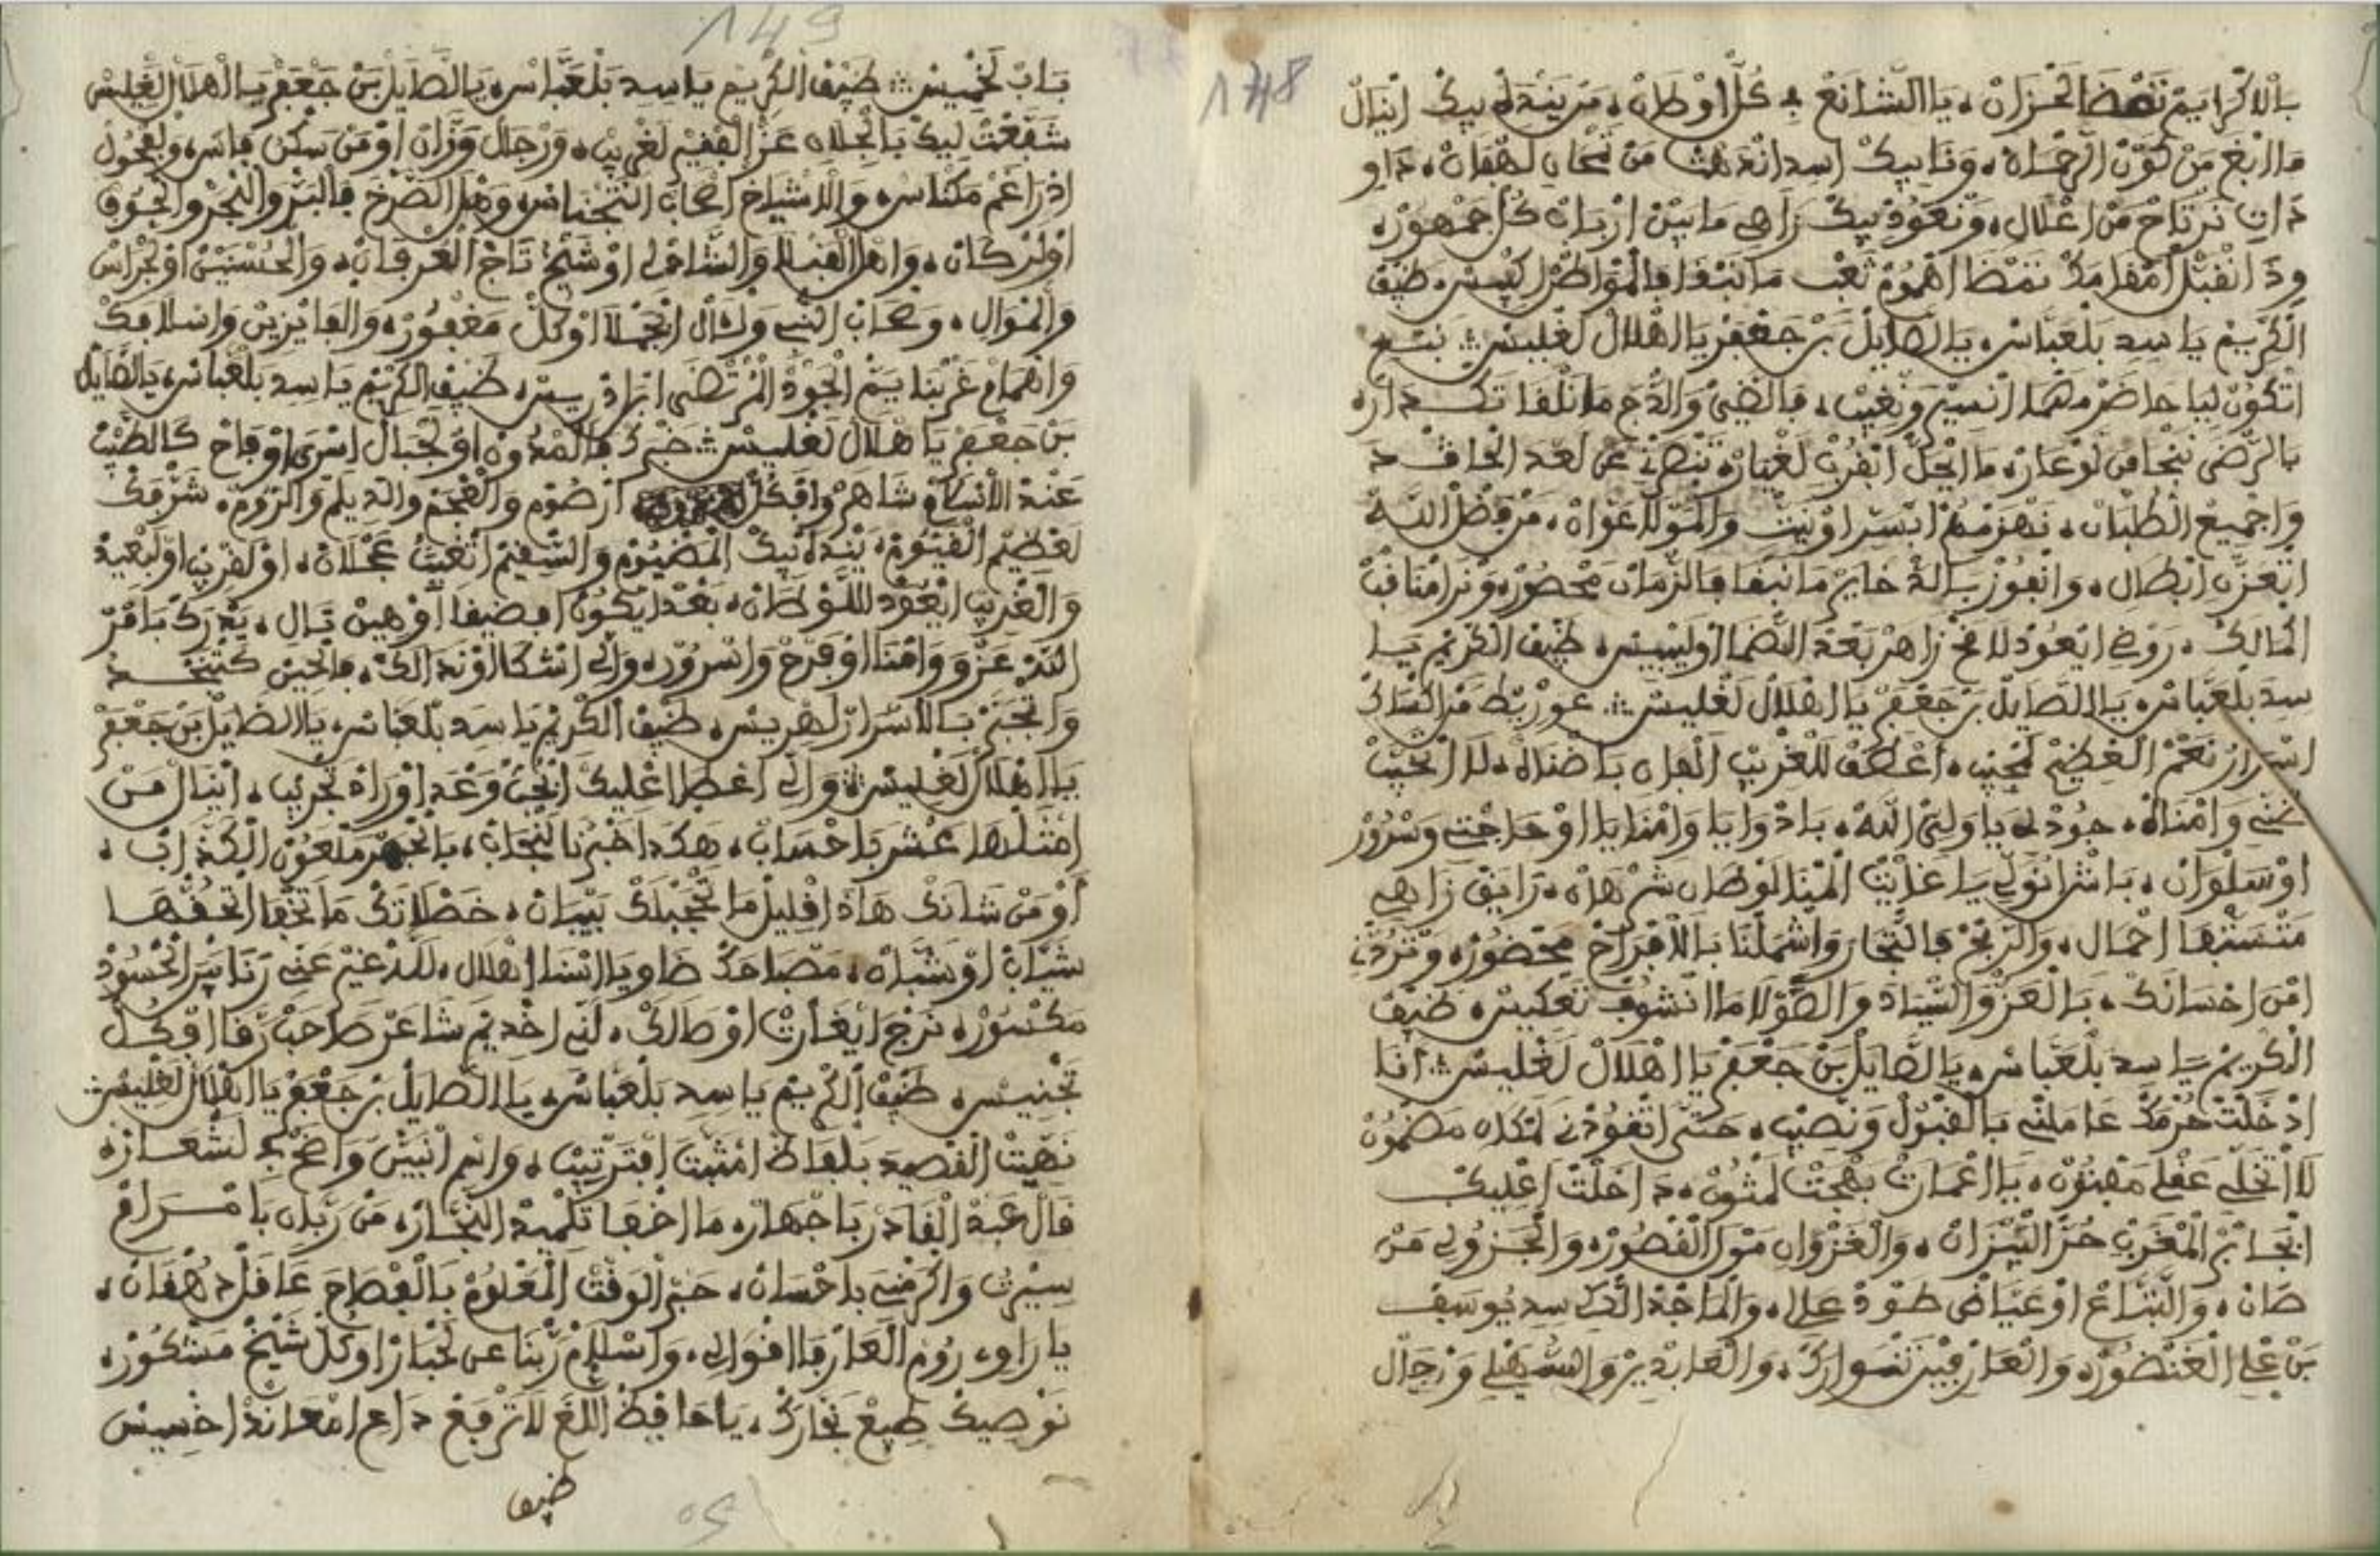 148
بالاكرايم تنقضا لحزان، يا الشانع به كل اوطان، من يندله بيك اينال
ما ابغ من كون الرحمان، ونا بيك اسد اندهت من نحاي لهفان، داو
دات نرتاح من اعلال، ونعود بيك زاهي مابين ارباب كل جمهور،
وذ انقبل امقامك نقضا اهموم تعب ما تبقا فالمواطر كيس، ضيف
الكريم يا سيد بلعباس، يا الصايل بن جعفر يا الهلال لغليس
اتكون ليا حاضر مهما انسير ونغيب، فالضي والدج ما نلقا نكدارة
بالرضى ننجا من لوعار، ما ايحل ابقرب لغيارة تنصرني عن لعد الخافد
واجميع الطلبان، نهزمهم ابسر اوبيت والمولا عوان، من فضل الله
اتعزن ابطال، وانفوز بالد خاير ما نبقا فالزمان محصور، ونرا منافب
المالك، روضي ايعود لاقح زاهر بعد الضما اوليبيس، ضيف الكريم يا
سيد بلعباس، يا الصايل بن جعفر يا الهلال لغليس
اسرار نعم العظيم لمجيب، اعطف للغريب الهاه باضناه، لا اتخيب
ظني وامناه، جود له يا ولي الله، بادوايا وامنايا اوحاجتي وسرور
اوسلوان، باش انولي يا غايت المينا لوطان شرهان، رايق زاهي
متسبها احمال، والربح فالتجار واشملنا بالافراح محضور، وتردني
امن احسانك، بالعز والسياد والصولا ما انشوف تعكيس، ضيف
الكريم يا سيد بلعباس، يا الصايل بن جعفر يا اهلال لغليس انا
ادخلت حرمك عاملني بالقبول ونصيب، حتى اتفودني لمكان مضمون
لا اتخلي عقلي مفتون، يا اعمارت بهجت لمتون، داخلت اعليك
ابحاتم المغرب حز الميزان، والغزواني مول القصور، والجزولي من
صان، والتباع اوعياض طود علي، والماجد التكي سيد يوسف
بن علي الغنضور، والعارفين نسوارك، والعابدين والسهيلي ورجال
149
باب لخميس ضيف الكريم يا سيد بلعباس، يا الصايل بن جعفر يا الهلال لغليس
شفعت ليك بالجلاه عز الفقير لغريب، ورجال وزان اومن سكن فاس، ولفحول
ادراغم مكناس، والاشياخ اصحاب التجناس، وهل الصرخ فالبر والبحر والجوف
اولركان، واهل القبلا والشامي اوشيخ تاج العرفان، والحسنين اولجراس
والموال، وصحاب النبي ولال انجملا اوكل مغفور، والفايزين واسلافك
وامام غربنا يم الجود المرتضى ابن ادريس، ضيف الكريم يا سيد بلعباس، يا الصايل
بن جعفر يا هلال لغليس خبرك فالمدون اولجبال اسرى اوفاح كالطيب
عند الانسام شاهر وافكل ارضوم والعجم والديلم والروم، شرفك
لعظيم القيوم، يندلك بيك المضيوم والسقيم اتغيث عجلان، اولقريب اولبعيد
والغريب ايعود للوطان، بعد ايكون افضيفا اوهين تال، يدرك بافر
اللد عز ووامنا اوفرح واسرور، والي اشكا اوندالك، فالحين كتنجد
وانجبر بالاسرار لهريس، ضيف الكريم يا سيد بلعباس، يا الصايل بن جعفر
يا الهلال لغليس والي اعطا اعليك ايجي وعد اوراه تجريب، اينال من
امثلها عشر باحساب، هكدا خبرنا لنجاب، بالجهر ملعون الكداب،
اومن شانك هاد افليل ما تحجبلك بيبان، خصلاتك ما تخفا اتحفها
شياب اوشبان، مصباحك ضاويا السنا اهلال، للد غير عني رنا بير الحسود
مكسور، نرجا ايغارت اوطالك، لني اخديم شاعر صاحب زفا افكل
تجنيس، ضيف الكريم يا سيد بلعباس، يا الصايل بن جعفر يا الهلال لغليس
نهيت القصيد بلفاظ امتبت افترتيب، واسم انبين واضح به لشعارة
قال عبد القادر باجهار، ما اخفا تلميد النجار، من ربان بامرام
سيرت واكرمني باحسان، حبر الوقت المعلوم بالفصاح عافل دهفان،
يا راوي روم العارفا اقوالي، واسلام ربنا عن لحبار اوكل شيخ مشكور،
نوصيك طيع نجارك، يا حافيظ اللغ لا ترفع داعي امعاند اخسيس
ضيف